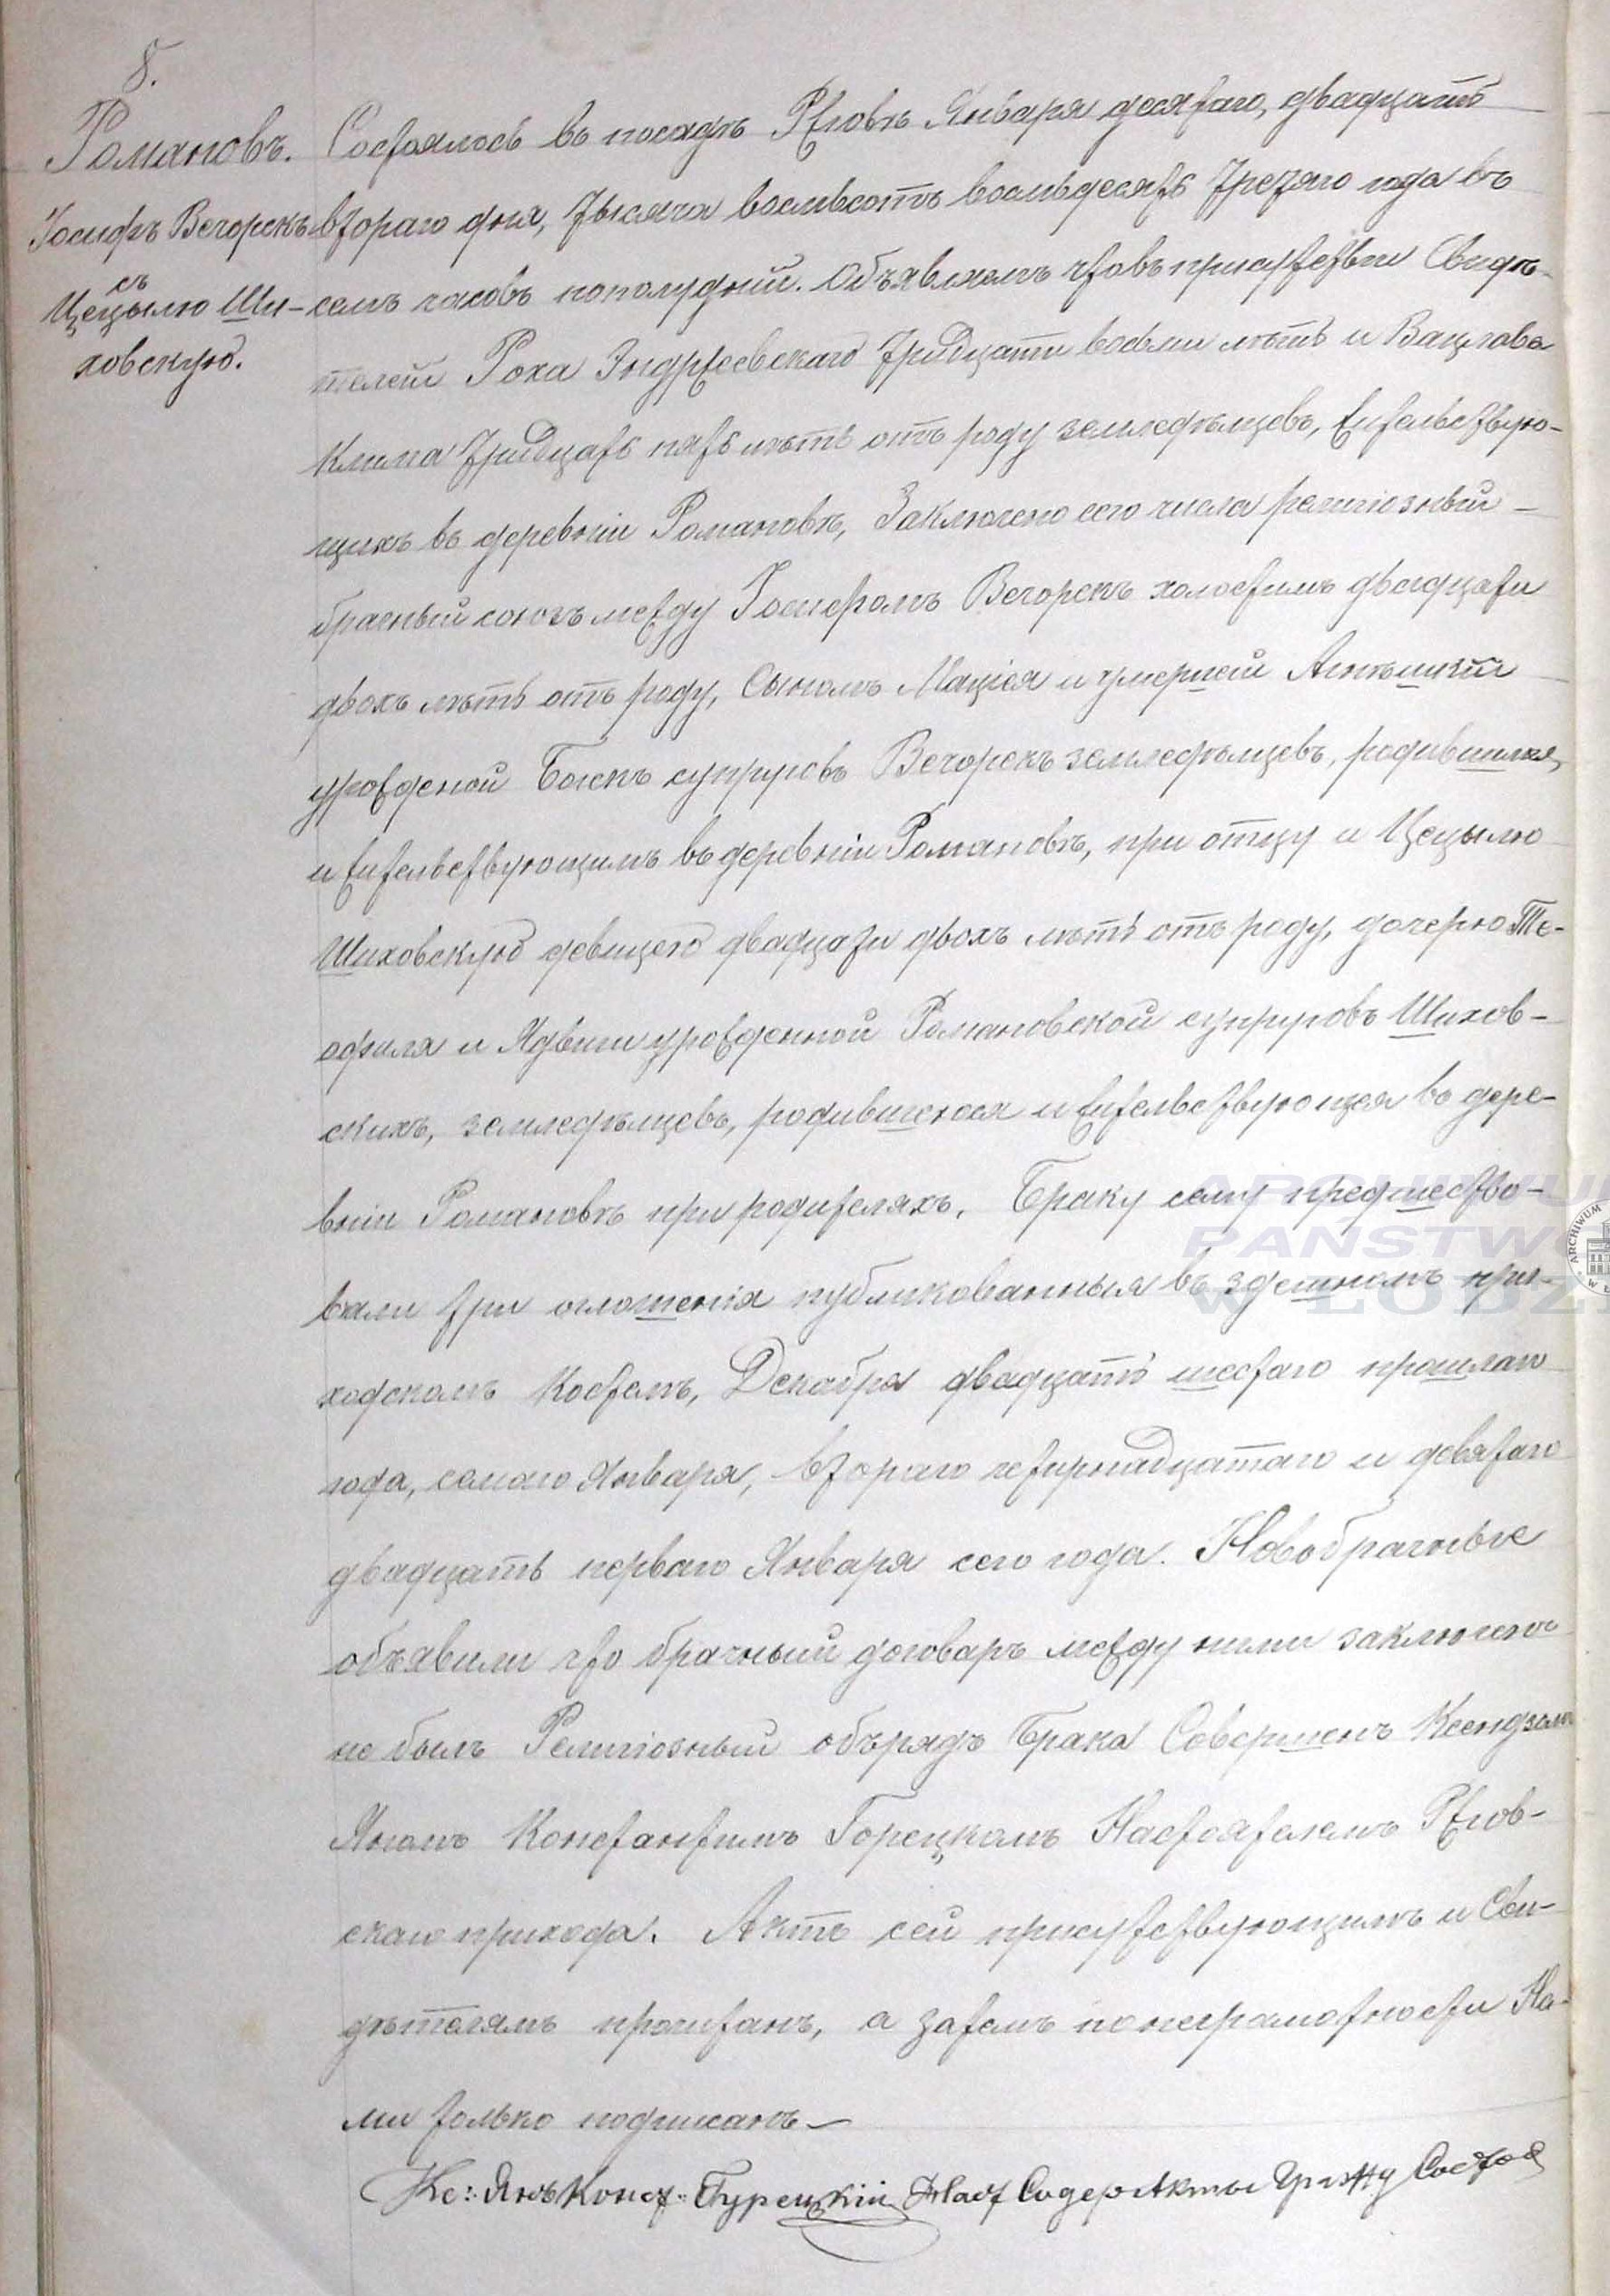 8.
Романовъ.
Іосифъ Вечорекъ
съ
Цецылю Ши-
ховскую.
Состоялось въ посадѣ Ржговѣ Января десятаго, двадцать
втораго дня, тысяча восемьсотъ восемьдесятъ третяго года въ
семъ часовъ пополудніи. Объявляемъ что въ присутствіи Свидѣ-
телей Роха Эндржеевскаго тридцати восьми лѣтъ и Вацлова
Клима тридцать пять лѣтъ отъ роду земледѣльцевъ, жительствую-
щихъ въ деревніи Романовѣ, Заключено сего числа религіозный
брачный союзъ между Іосифомъ Вечорекъ холостымъ двадцати
двохъ лѣтъ отъ роду, Сыномъ Мацѣя и умершей Агнѣшки
урожденой Боекъ супруговъ Вечорекъ земледѣльцевъ, родившимся,
и жительствующимъ въ деревніи Романовѣ, при отцу и Цецылю
Шиховскую девицею двадцати двохъ лѣтъ отъ роду, дочерю Те-
офиля и Ядвиги урожденной Романовской супруговъ Шихов-
скихъ, земледѣльцевъ, родившеюся и жительствующая въ дере-
вніи Романовѣ при родителяхъ. Браку сему предшество-
вали три оглошенія публикованныя въ здешномъ при-
ходскомъ Костелѣ, Декабря двадцать шестаго прошлаго
года, семаго Января, втораго четырнадцатаго и девятаго
двадцать перваго Января сего года. Новобрачные
объявили что брачный договаръ между ними заключенъ
не былъ Религіозный обърядъ Брака Совершенъ Ксендзомъ
Яномъ Константымъ Горецкомъ Настоятелемъ Ржгов-
скаго прихода. Актъ сей присутствующимъ и Сви-
дѣтелямъ прочитанъ, а затемъ по неграмотности На-
ми только подписанъ
Кс: Янъ Конст: Гурецкій Наст Содер Акты Граж Состоя